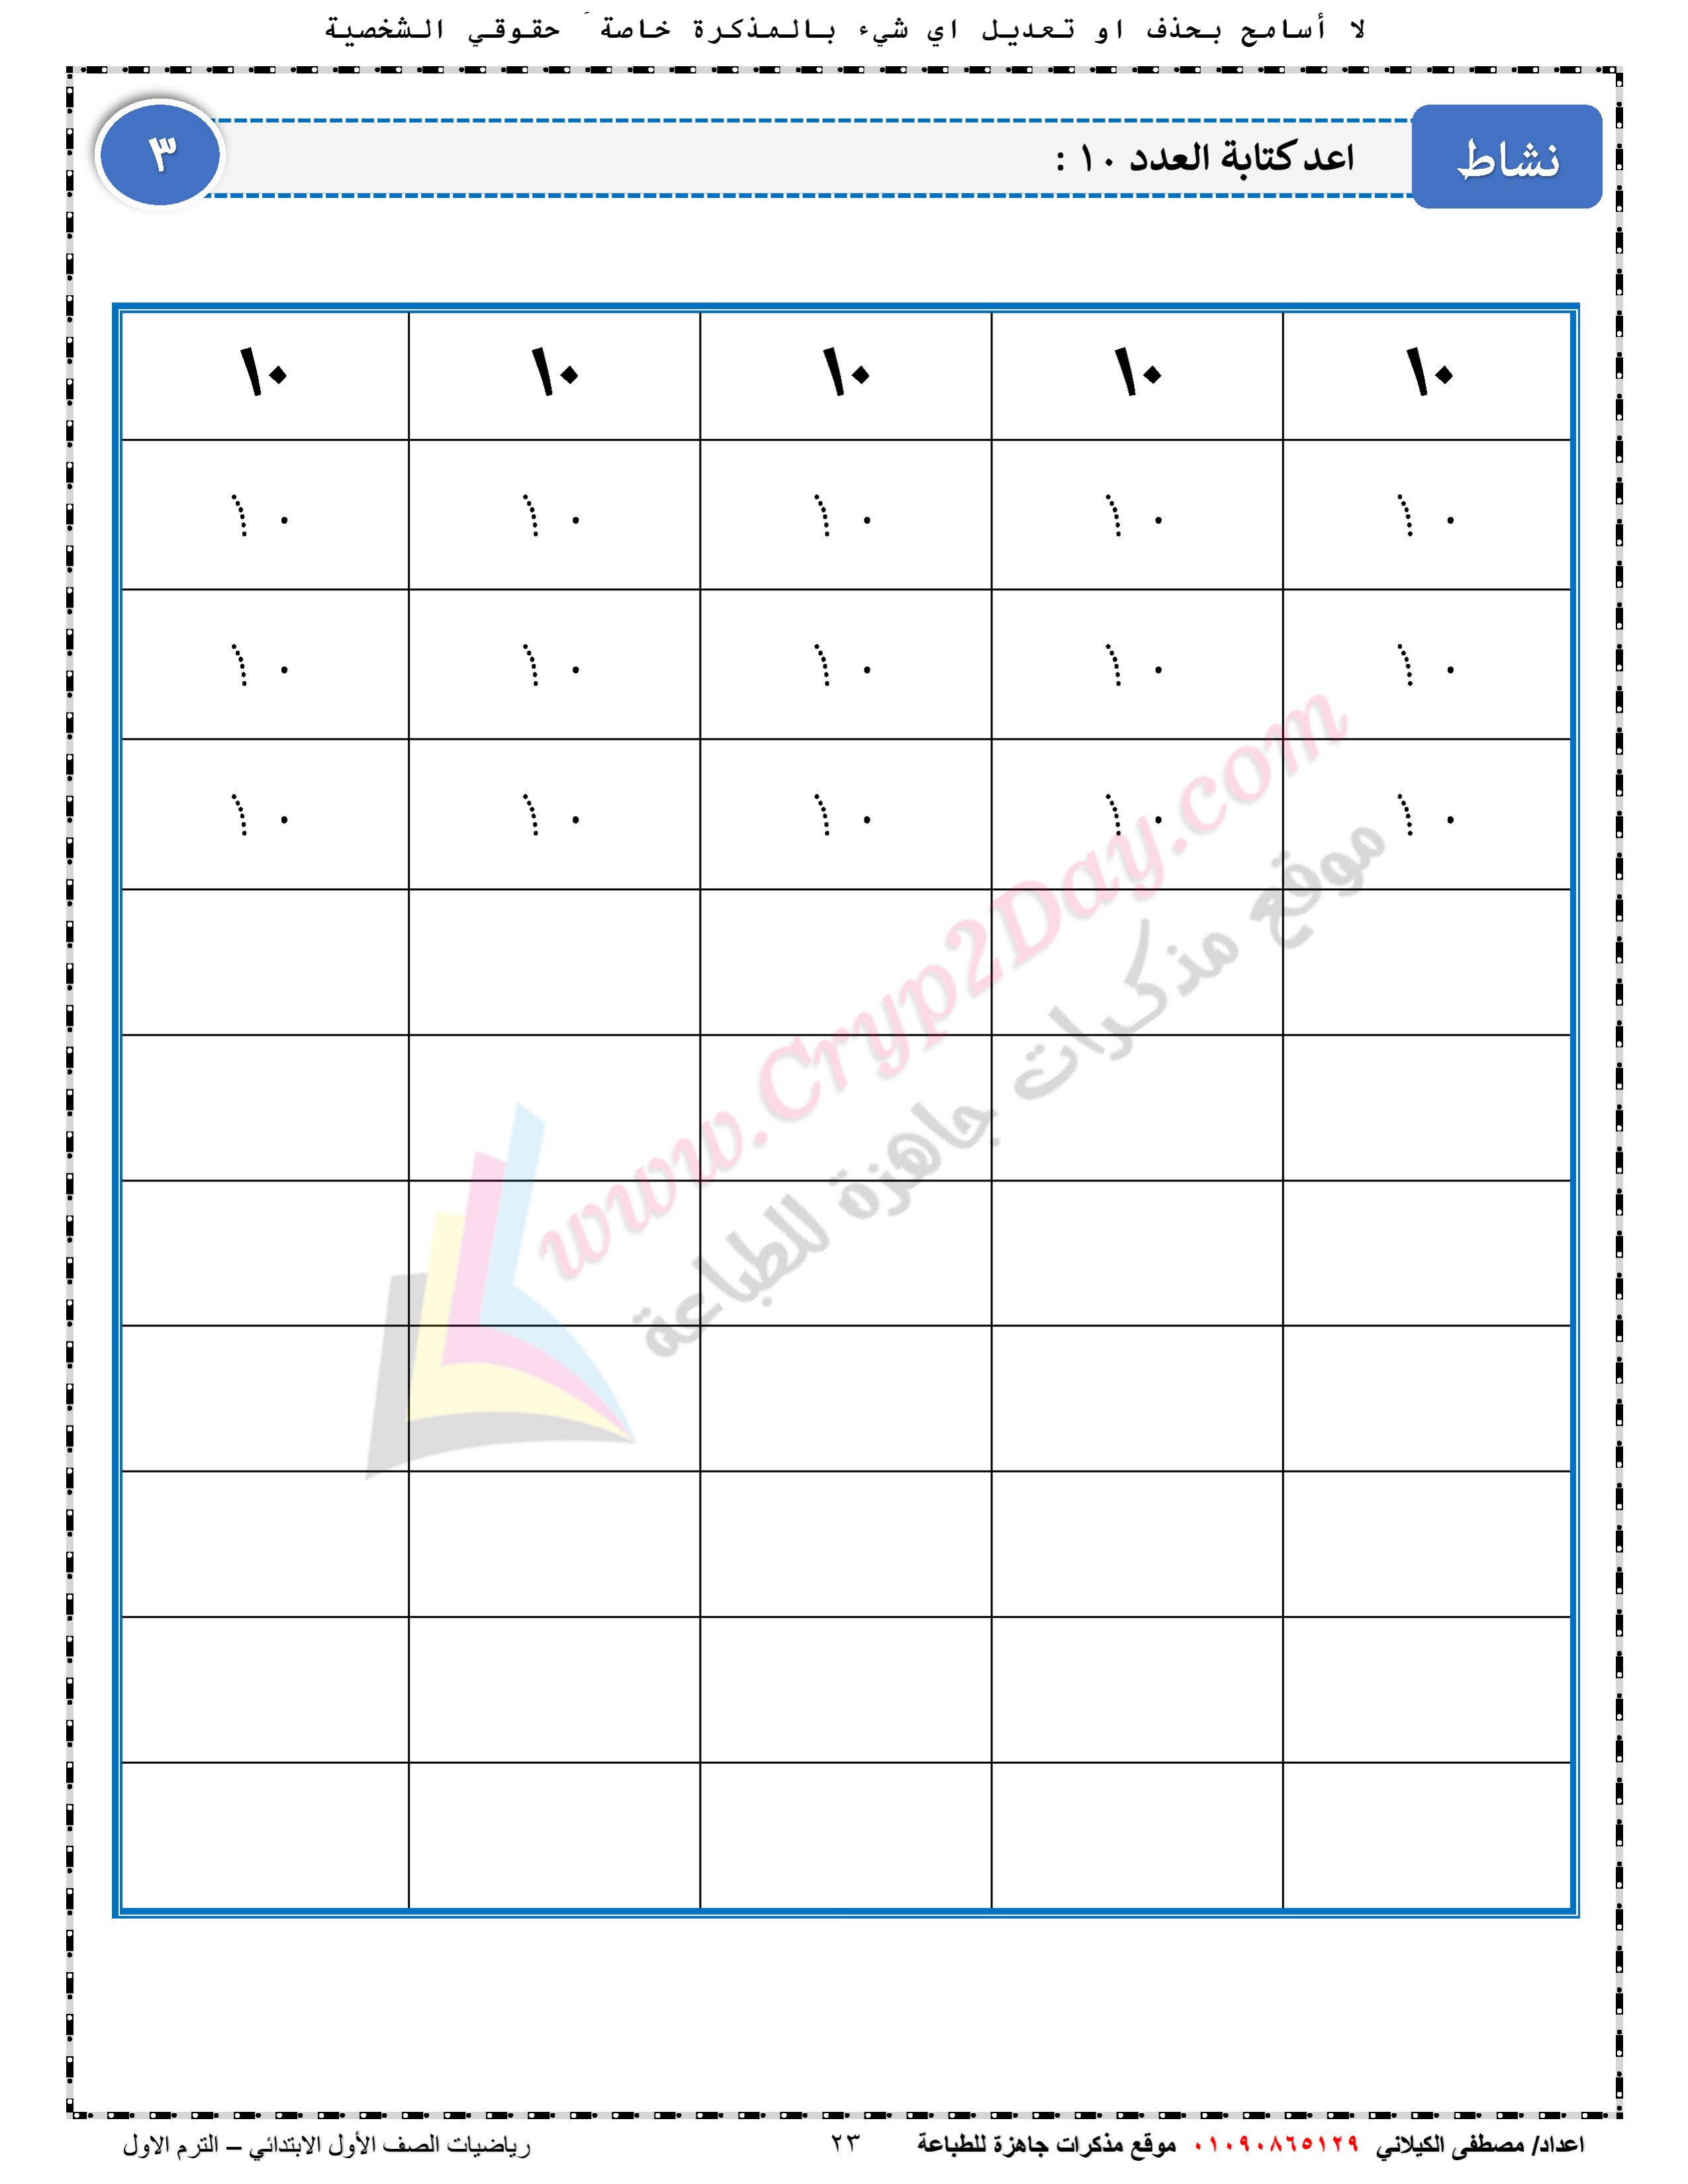 لا أسامح بحذف او تعديل اي شيء بالمذكرة خاصةً حقوقي الشخصية
نشاط
اعد كتابة العدد ١٠ :
٣
١٠ ١٠ ١٠ ١٠ ١٠
١٠ ١٠ ١٠ ١٠ ١٠
١٠ ١٠ ١٠ ١٠ ١٠
١٠ ١٠ ١٠ ١٠ ١٠
www.Cryp2Day.com
موقع مذكرات جاهزة للطباعة
اعداد/ مصطفى الكيلاني ٠١٠٩٠٨٦٥١٢٩ موقع مذكرات جاهزة للطباعة ٢٣ رياضيات الصف الأول الابتدائي – الترم الاول